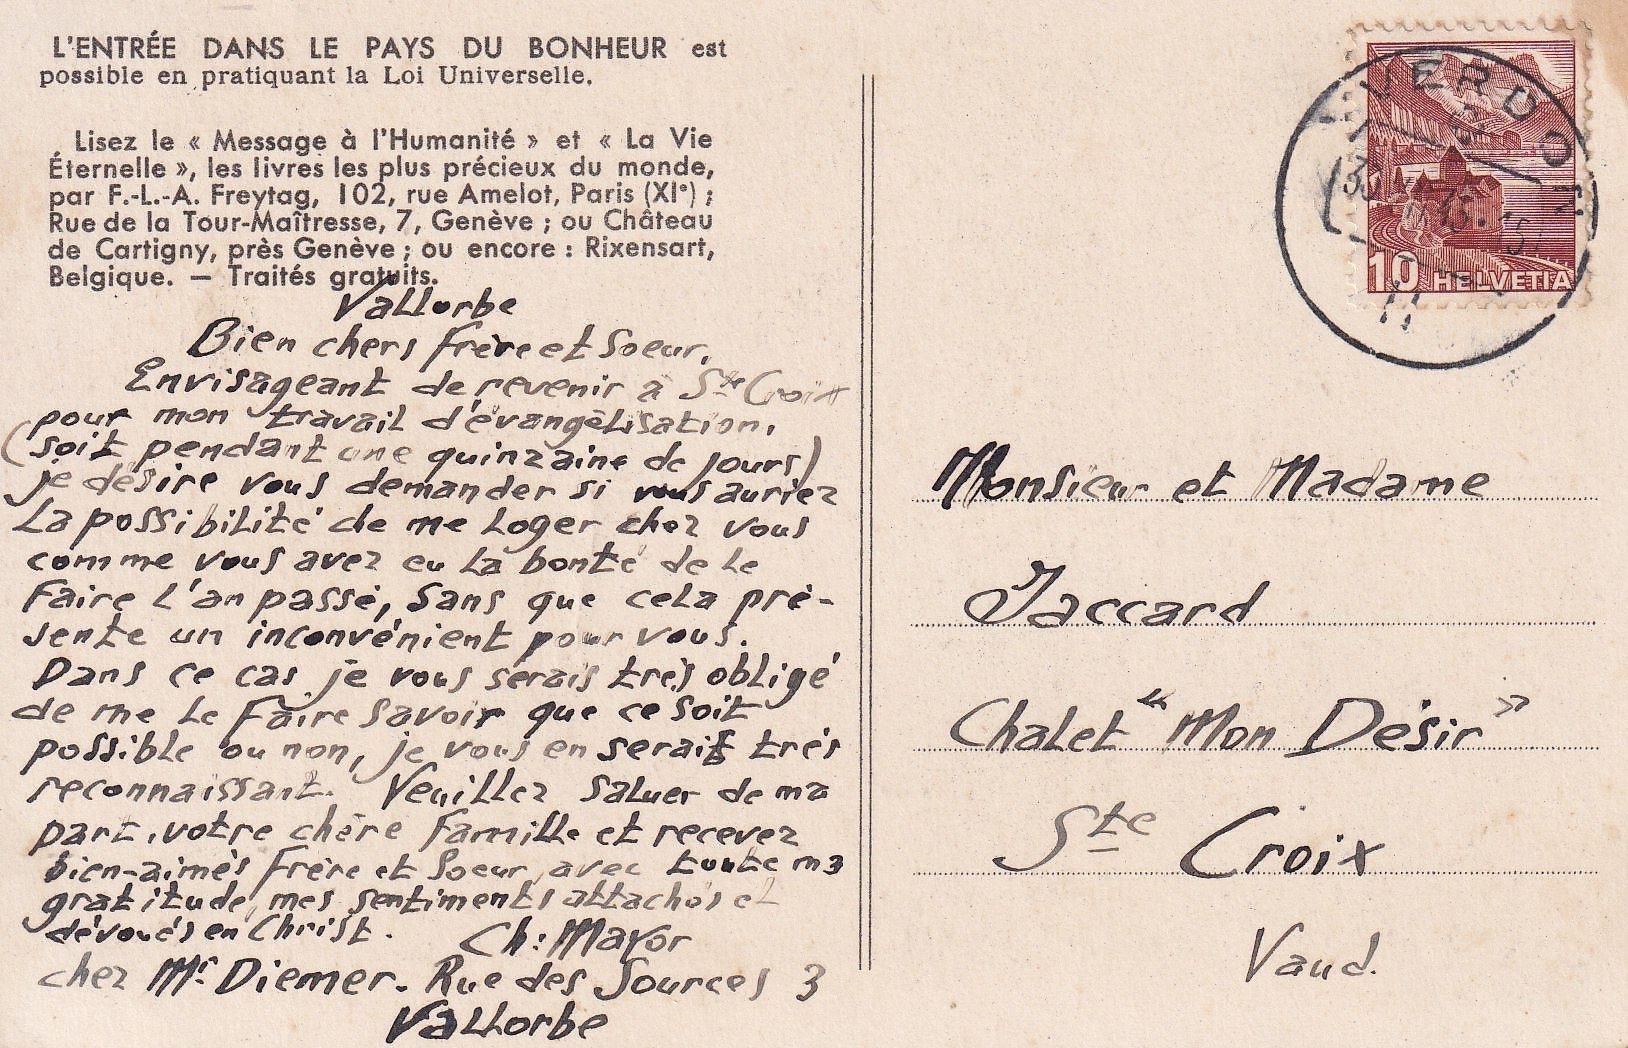 L'ENTRÉE DANS LE PAYS DU BONHEUR est
possible en pratiquant la Loi Universelle.
Lisez le « Message à l'Humanité » et « La Vie
Éternelle », les livres les plus précieux du monde,
par F.-L.-A. Freytag, 102, rue Amelot, Paris (XIe) ;
Rue de la Tour-Maîtresse, 7, Genève ; ou Château
de Cartigny, près Genève ; ou encore : Rixensart,
Belgique. — Traités gratuits.
Vallorbe
Bien chers frère et soeur,
Envisageant de revenir à Ste Croix
pour mon travail d'évangélisation,
(soit pendant une quinzaine de jours)
je désire vous demander si vous auriez
la possibilité de me loger chez vous
comme vous avez eu la bonté de le
faire l'an passé, sans que cela pré-
sente un inconvénient pour vous.
Dans ce cas je vous serais très obligé
de me le faire savoir que ce soit
possible ou non, je vous en serait très
reconnaissant. Veuillez saluer de ma
part, votre chère famille et recevez
bien-aimés frère et soeur, avec toute ma
gratitude, mes sentiments attachés et
dévoués en Christ.
Ch: Mayor
chez Mr Diemer. Rue des Sources 3
Vallorbe
YVERDON
10 HELVETIA
Monsieur et Madame
Jaccard
Chalet "Mon Désir"
Ste Croix
Vaud.